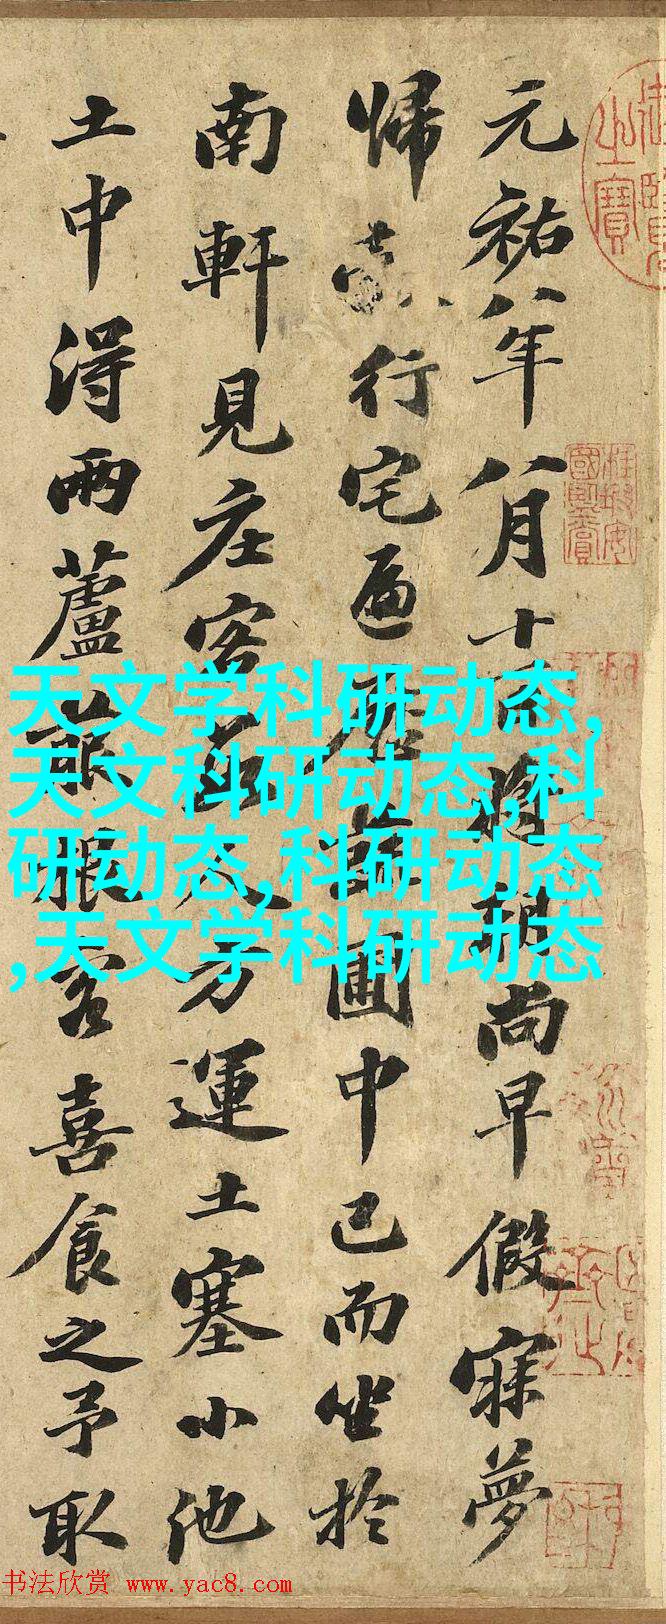 元祐八年八月十一日將朝尚早假寐夢
歸行宅遍歷蔬圃中已而坐於
南軒見庄客數人方運土塞小池
土中得兩蘆菔根客喜食之予取
天文学科研动态,
天文科研动态,科
研动态,科研动态
,天文学科研动态
书法欣赏 www.yac8.com